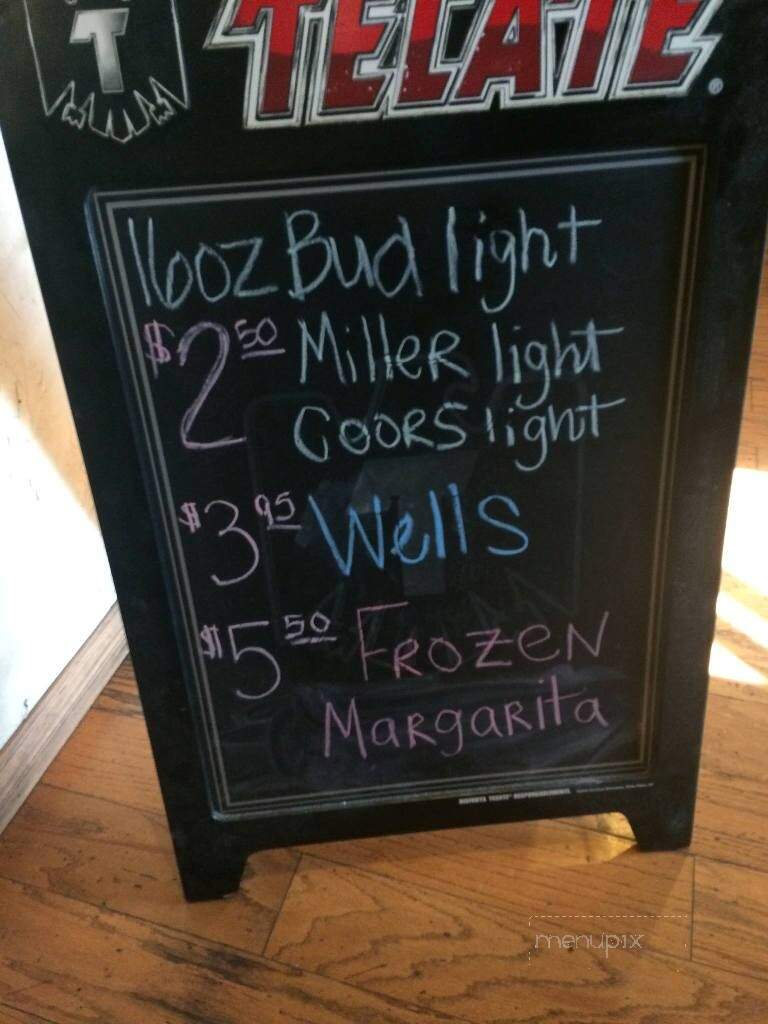 T
TECATE®
16oz Bud light
$2.50 Miller light
Coors light
$3.95 Wells
$5.50 Frozen
Margarita
menupix